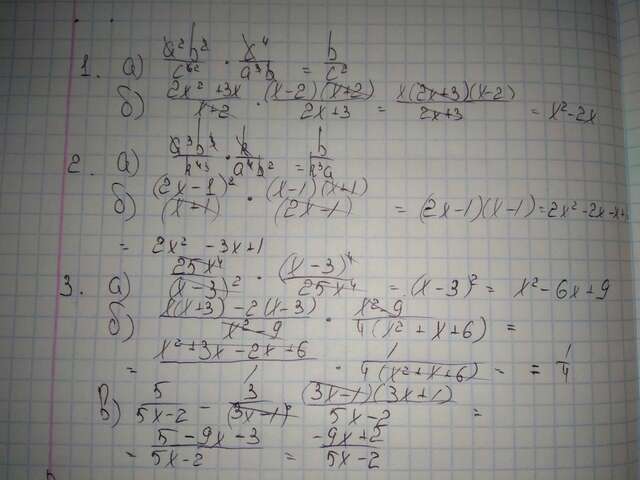 1. а) a²b²/c⁶² · x⁴/a³b = b/c²
б) 2x² + 3x/x+2 · (x-2)(x+2)/2x+3 = x(2x+3)(x-2)/2x+3 = x²-2x
2. а) a³b³/k⁴³ · k/a⁴b² = b/k³a
б) (2x-1)²/(x+1) · (x-1)(x+1)/(2x-1) = (2x-1)(x-1)=2x²-2x-x+
= 2x² -3x+1
3. а) 25x⁴/(x-3)² · (x-3)⁴/25x⁴ = (x-3)² = x²-6x+9
б) x(x+3)-2(x-3)/x²-9 · x²-9/4(x²+x+6) =
= x²+3x-2x+6/1 · 1/4(x²+x+6) - = 1/4
в) 5/5x-2 - 3/(3x-1)² (3x-1)(3x+1)/5x-2 =
= 5-9x-3/5x-2 = -9x+2/5x-2